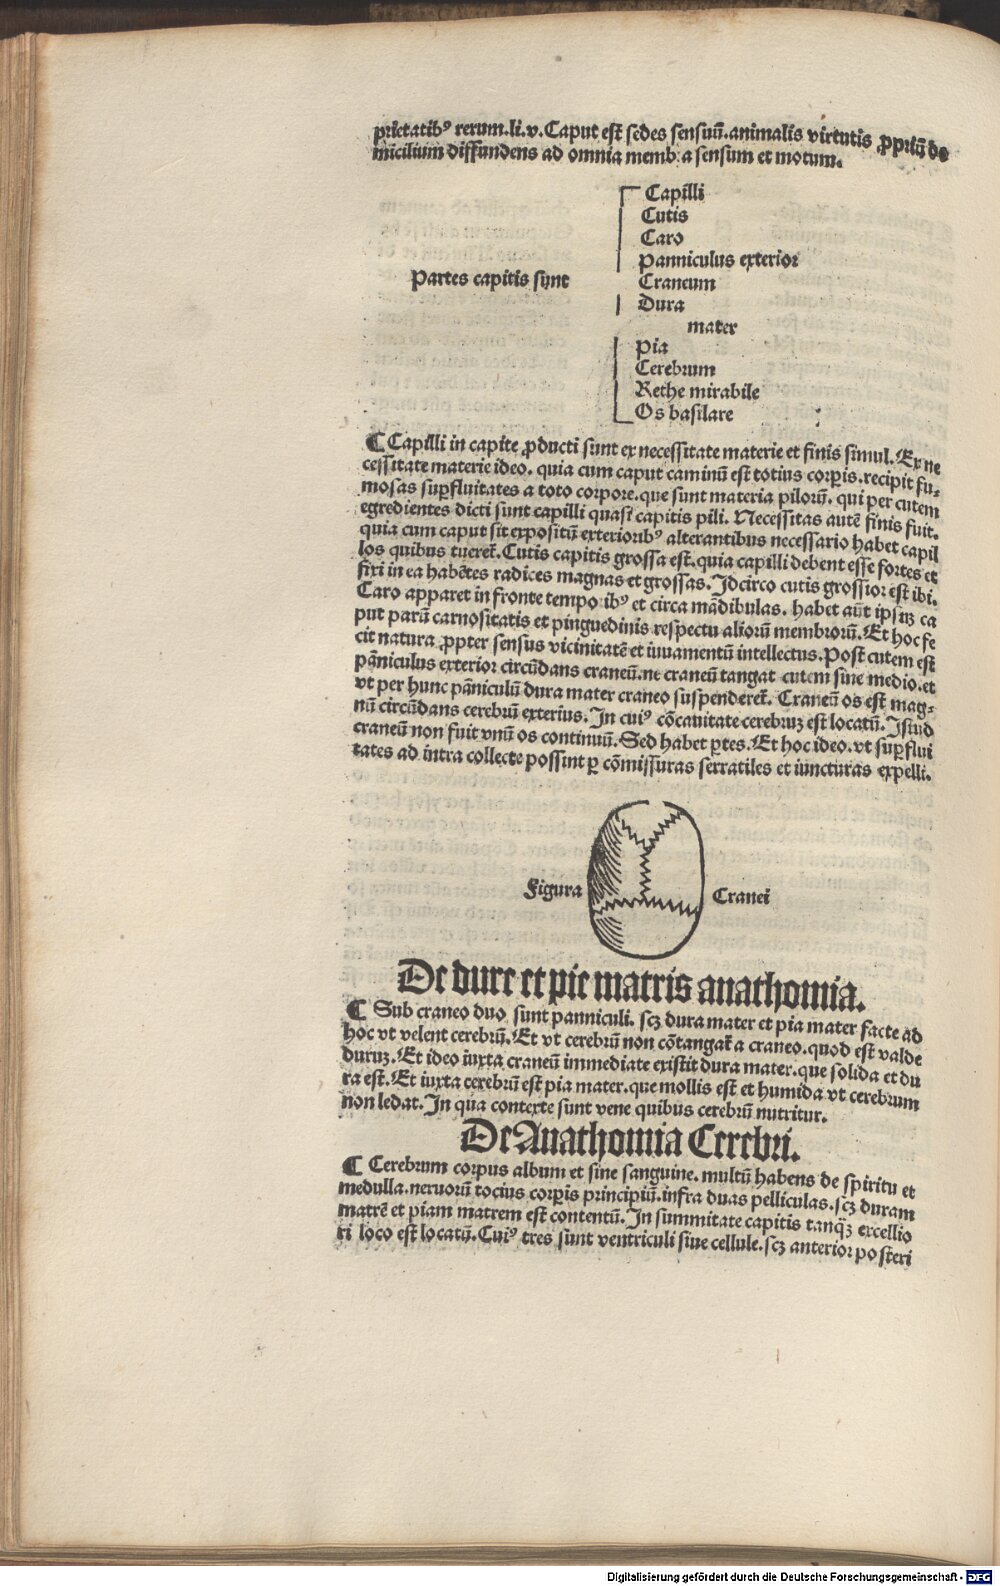 prietatibꝰ rerum.li.v.Caput est sedes sensuū.animalis virtutis ꝓpriū do
micilium diffundens ad omnia membra sensum et motum.
Capilli
Cutis
Caro
Panniculus exterior
Partes capitis sunt
Craneum
Dura
mater
Pia
Cerebrum
Rethe mirabile
Os basilare
¶ Capilli in capite ꝓducti sunt ex necessitate materie et finis simul. Ex ne
cessitate materie ideo. quia cum caput caminū est totius corꝑis.recipit fu⸗
mosas suꝑfluitates a toto corpore.que sunt materia pilorū. qui per cutem
egredientes dicti sunt capilli quasi capitis pili. Necessitas autē finis fuit.
quia cum caput sit expositū exterioribꝰ alterantibus necessario habet capil
los quibus tueret᷑.Cutis capitis grossa est.quia capilli debent esse fortes et
fixi in ea habētes radices magnas et grossas.Idcirco cutis grossior est ibi.
Caro apparet in fronte temporibꝰ et circa mādibulas. habet aūt ipsuꝫ ca
put parū carnositatis et pinguedinis respectu aliorū membrorū.Et hoc fe
cit natura ꝓpter sensus vicinitatē et iuuamentū intellectus.Post cutem est
pāniculus exterior circūdans craneū.ne craneū tangat cutem sine medio.et
vt per hunc pāniculū dura mater craneo suspenderet᷑. Craneū os est mag⸗
nū circūdans cerebrū exterius. In cuiꝰ cōcauitate cerebruꝫ est locatū.Istud
craneū non fuit vnū os continuū.Sed habet ꝑtes.Et hoc ideo.vt suꝑflui
tates ad intra collecte possint ꝑ cōmissuras serratiles et iuncturas expelli.
Figura Cranei
De dure et pie matris anathomia.
¶ Sub craneo duo sunt panniculi. scꝫ dura mater et pia mater facte ad
hoc vt velent cerebrū.Et vt cerebrū non cōtangat᷑ a craneo.quod est valde
duruꝫ.Et ideo iuxta craneū immediate existit dura mater.que solida et du
ra est.Et iuxta cerebrū est pia mater.que mollis est et humida vt cerebrum
non ledat.In qua contexte sunt vene quibus cerebrū nutritur.
De Anathomia Cerebri.
¶ Cerebrum corpus album et sine sanguine. multū habens de spiritu et
medulla.neruorū tocius corꝑis principiū.infra duas pelliculas.scꝫ duram
matrē et piam matrem est contentū.In summitate capitis tanqꝫ̄ excellio
ri loco est locatū.Cuiꝰ tres sunt ventriculi siue cellule.scꝫ anterior posteri
Digitalisierung gefördert durch die Deutsche Forschungsgemeinschaft - DFG